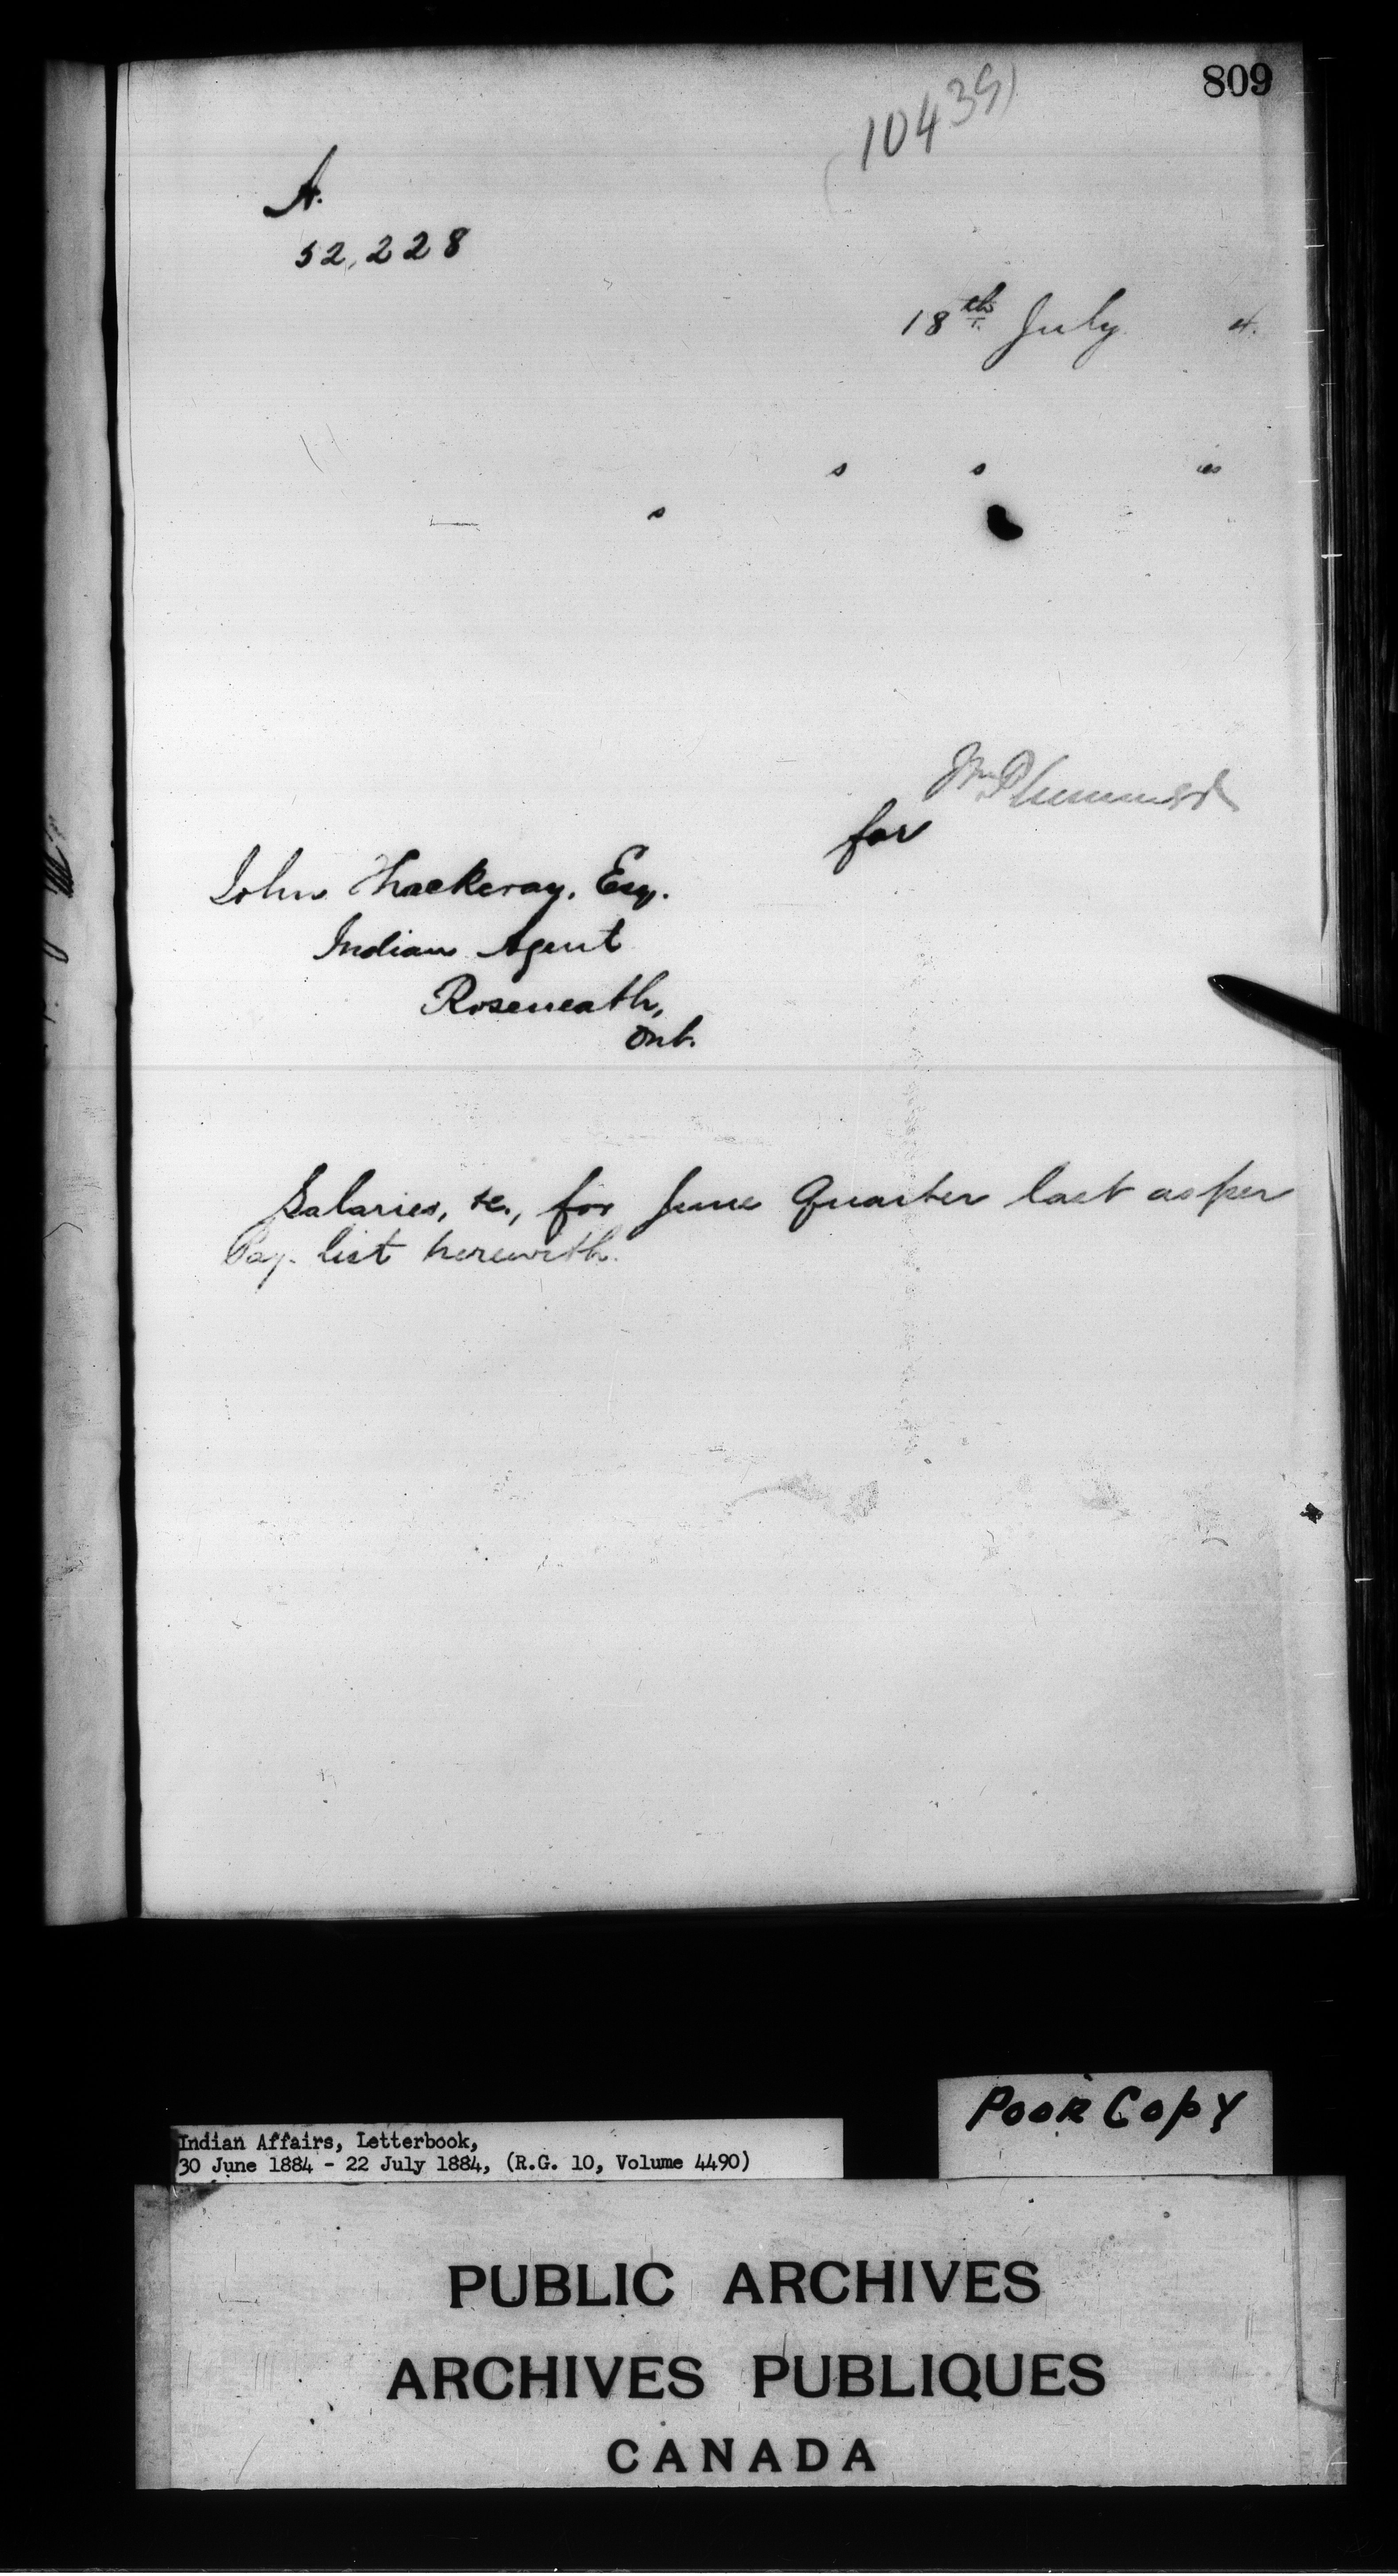 809
10439
A.
52,228
18th July 4.
s s es
s
Wm Plummer
for
John Thackeray, Esq.
Indian Agent
Roseneath,
Ont.
Salaries, &c., for June Quarter last as per
Pay-list herewith.
Poor Copy
Indian Affairs, Letterbook,
30 June 1884 - 22 July 1884, (R.G. 10, Volume 4490)
PUBLIC ARCHIVES
ARCHIVES PUBLIQUES
CANADA